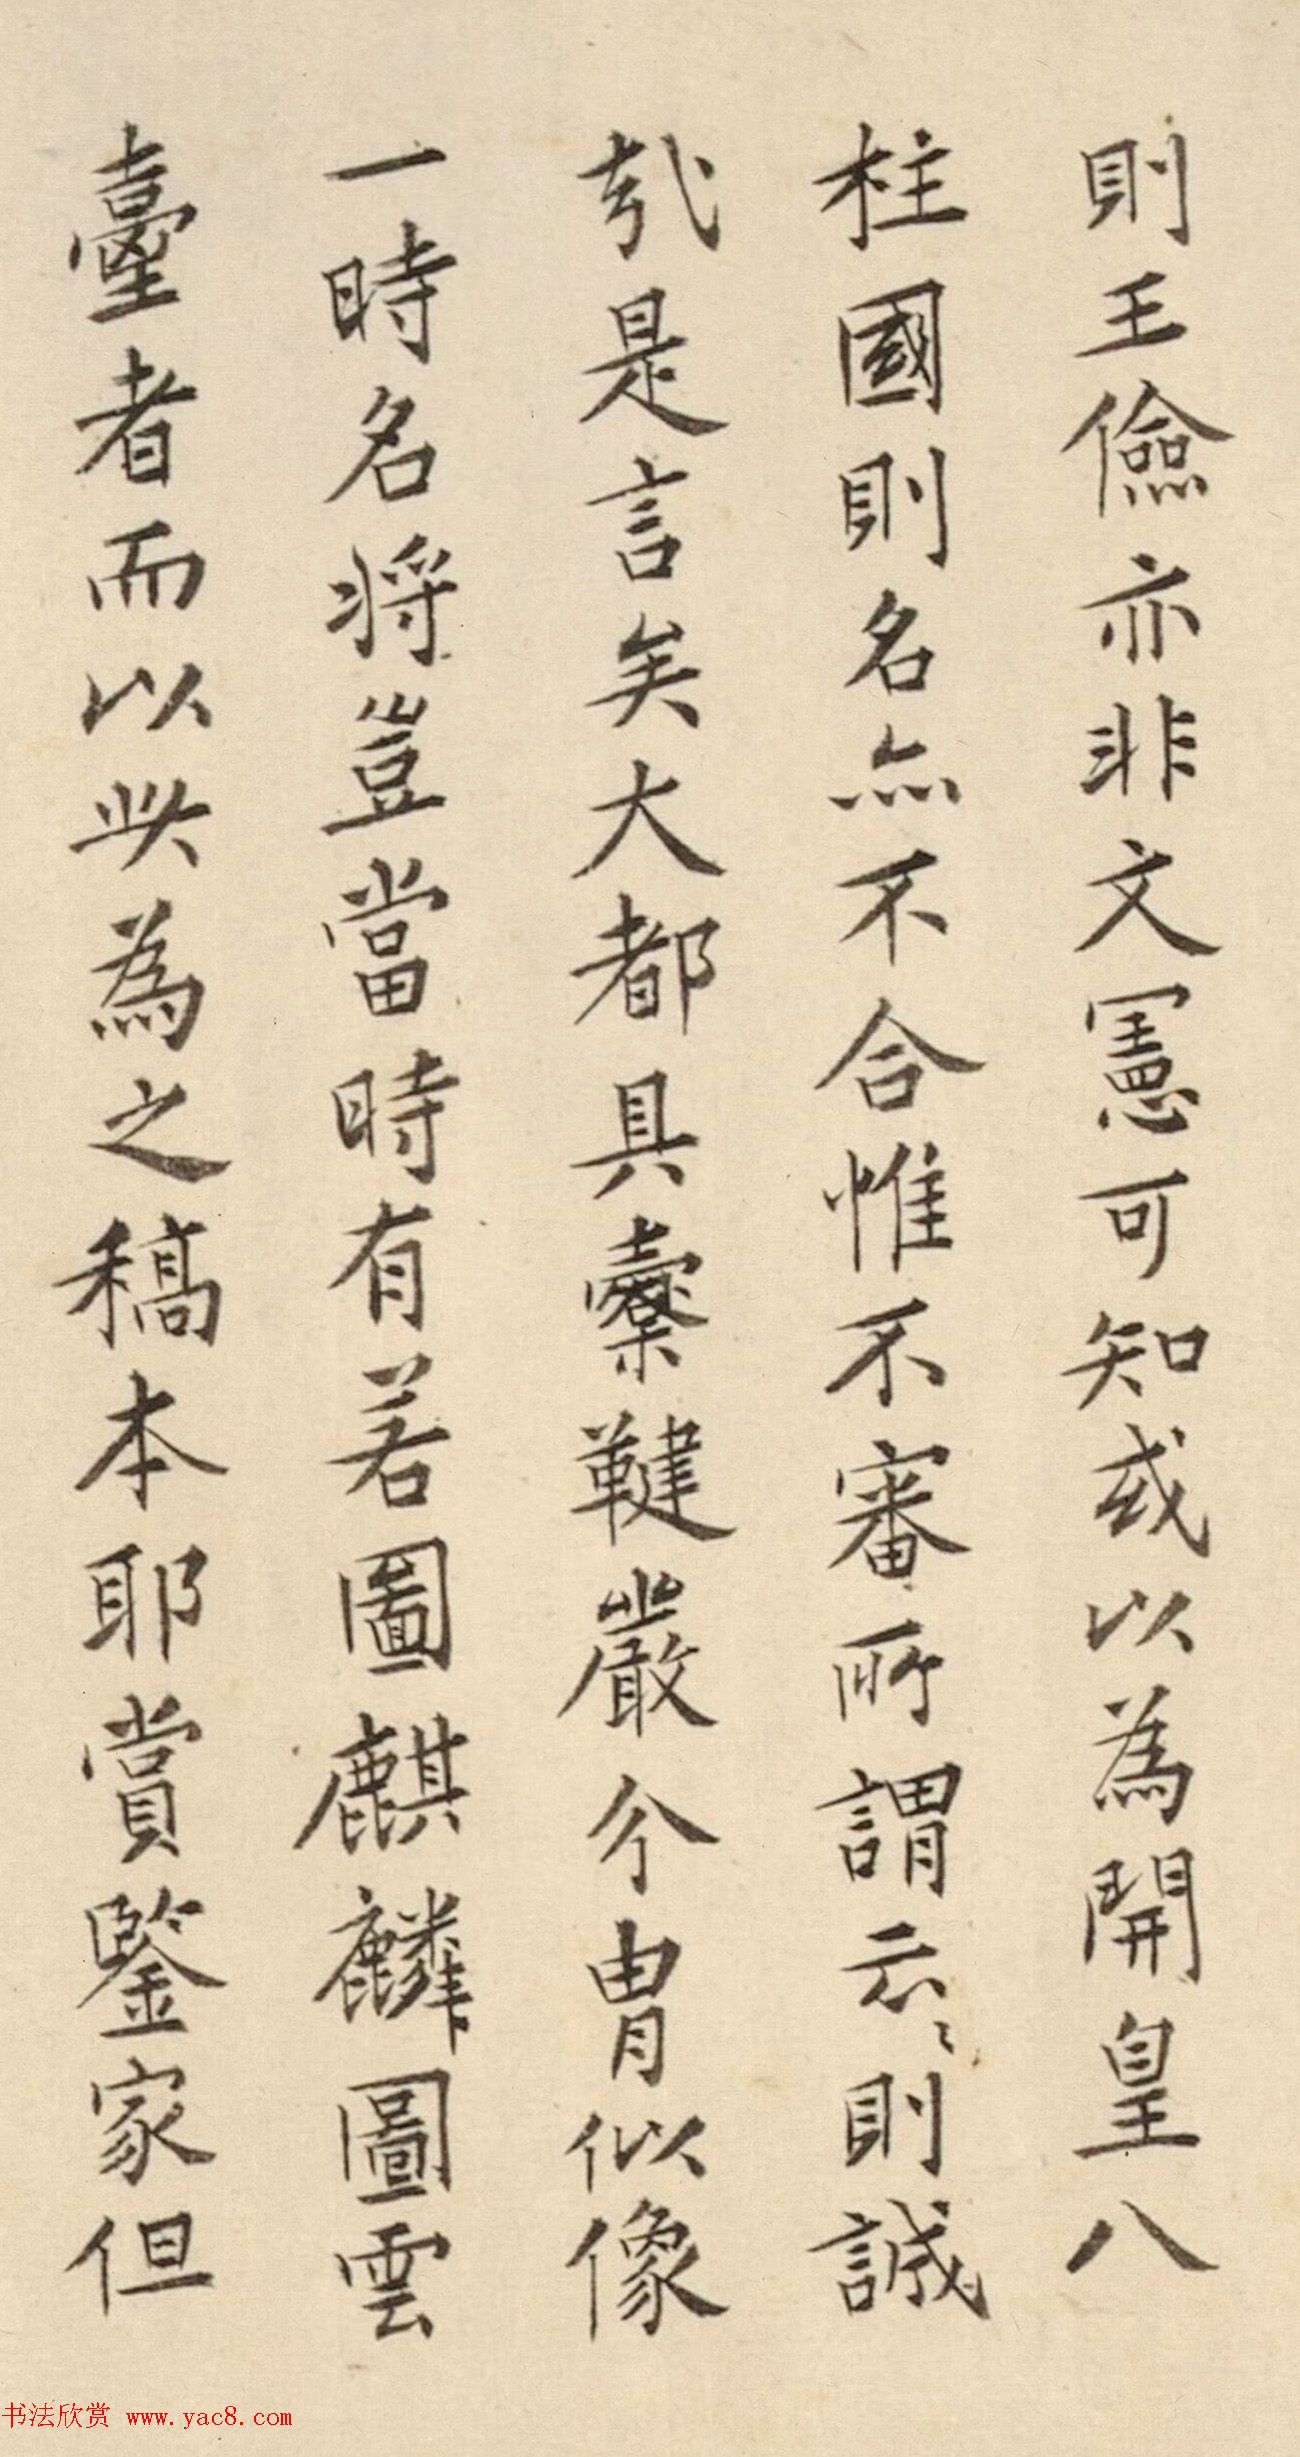 則王儉亦非文憲可知或以為開皇八
柱國則名亦不合惟不審所謂云〻則誠
哉是言矣大都具櫜鞬嚴介胄似像
一時名將豈當時有若圖麒麟圖雲
臺者而以此為之稿本耶賞鑒家但
书法欣赏 www.yac8.com